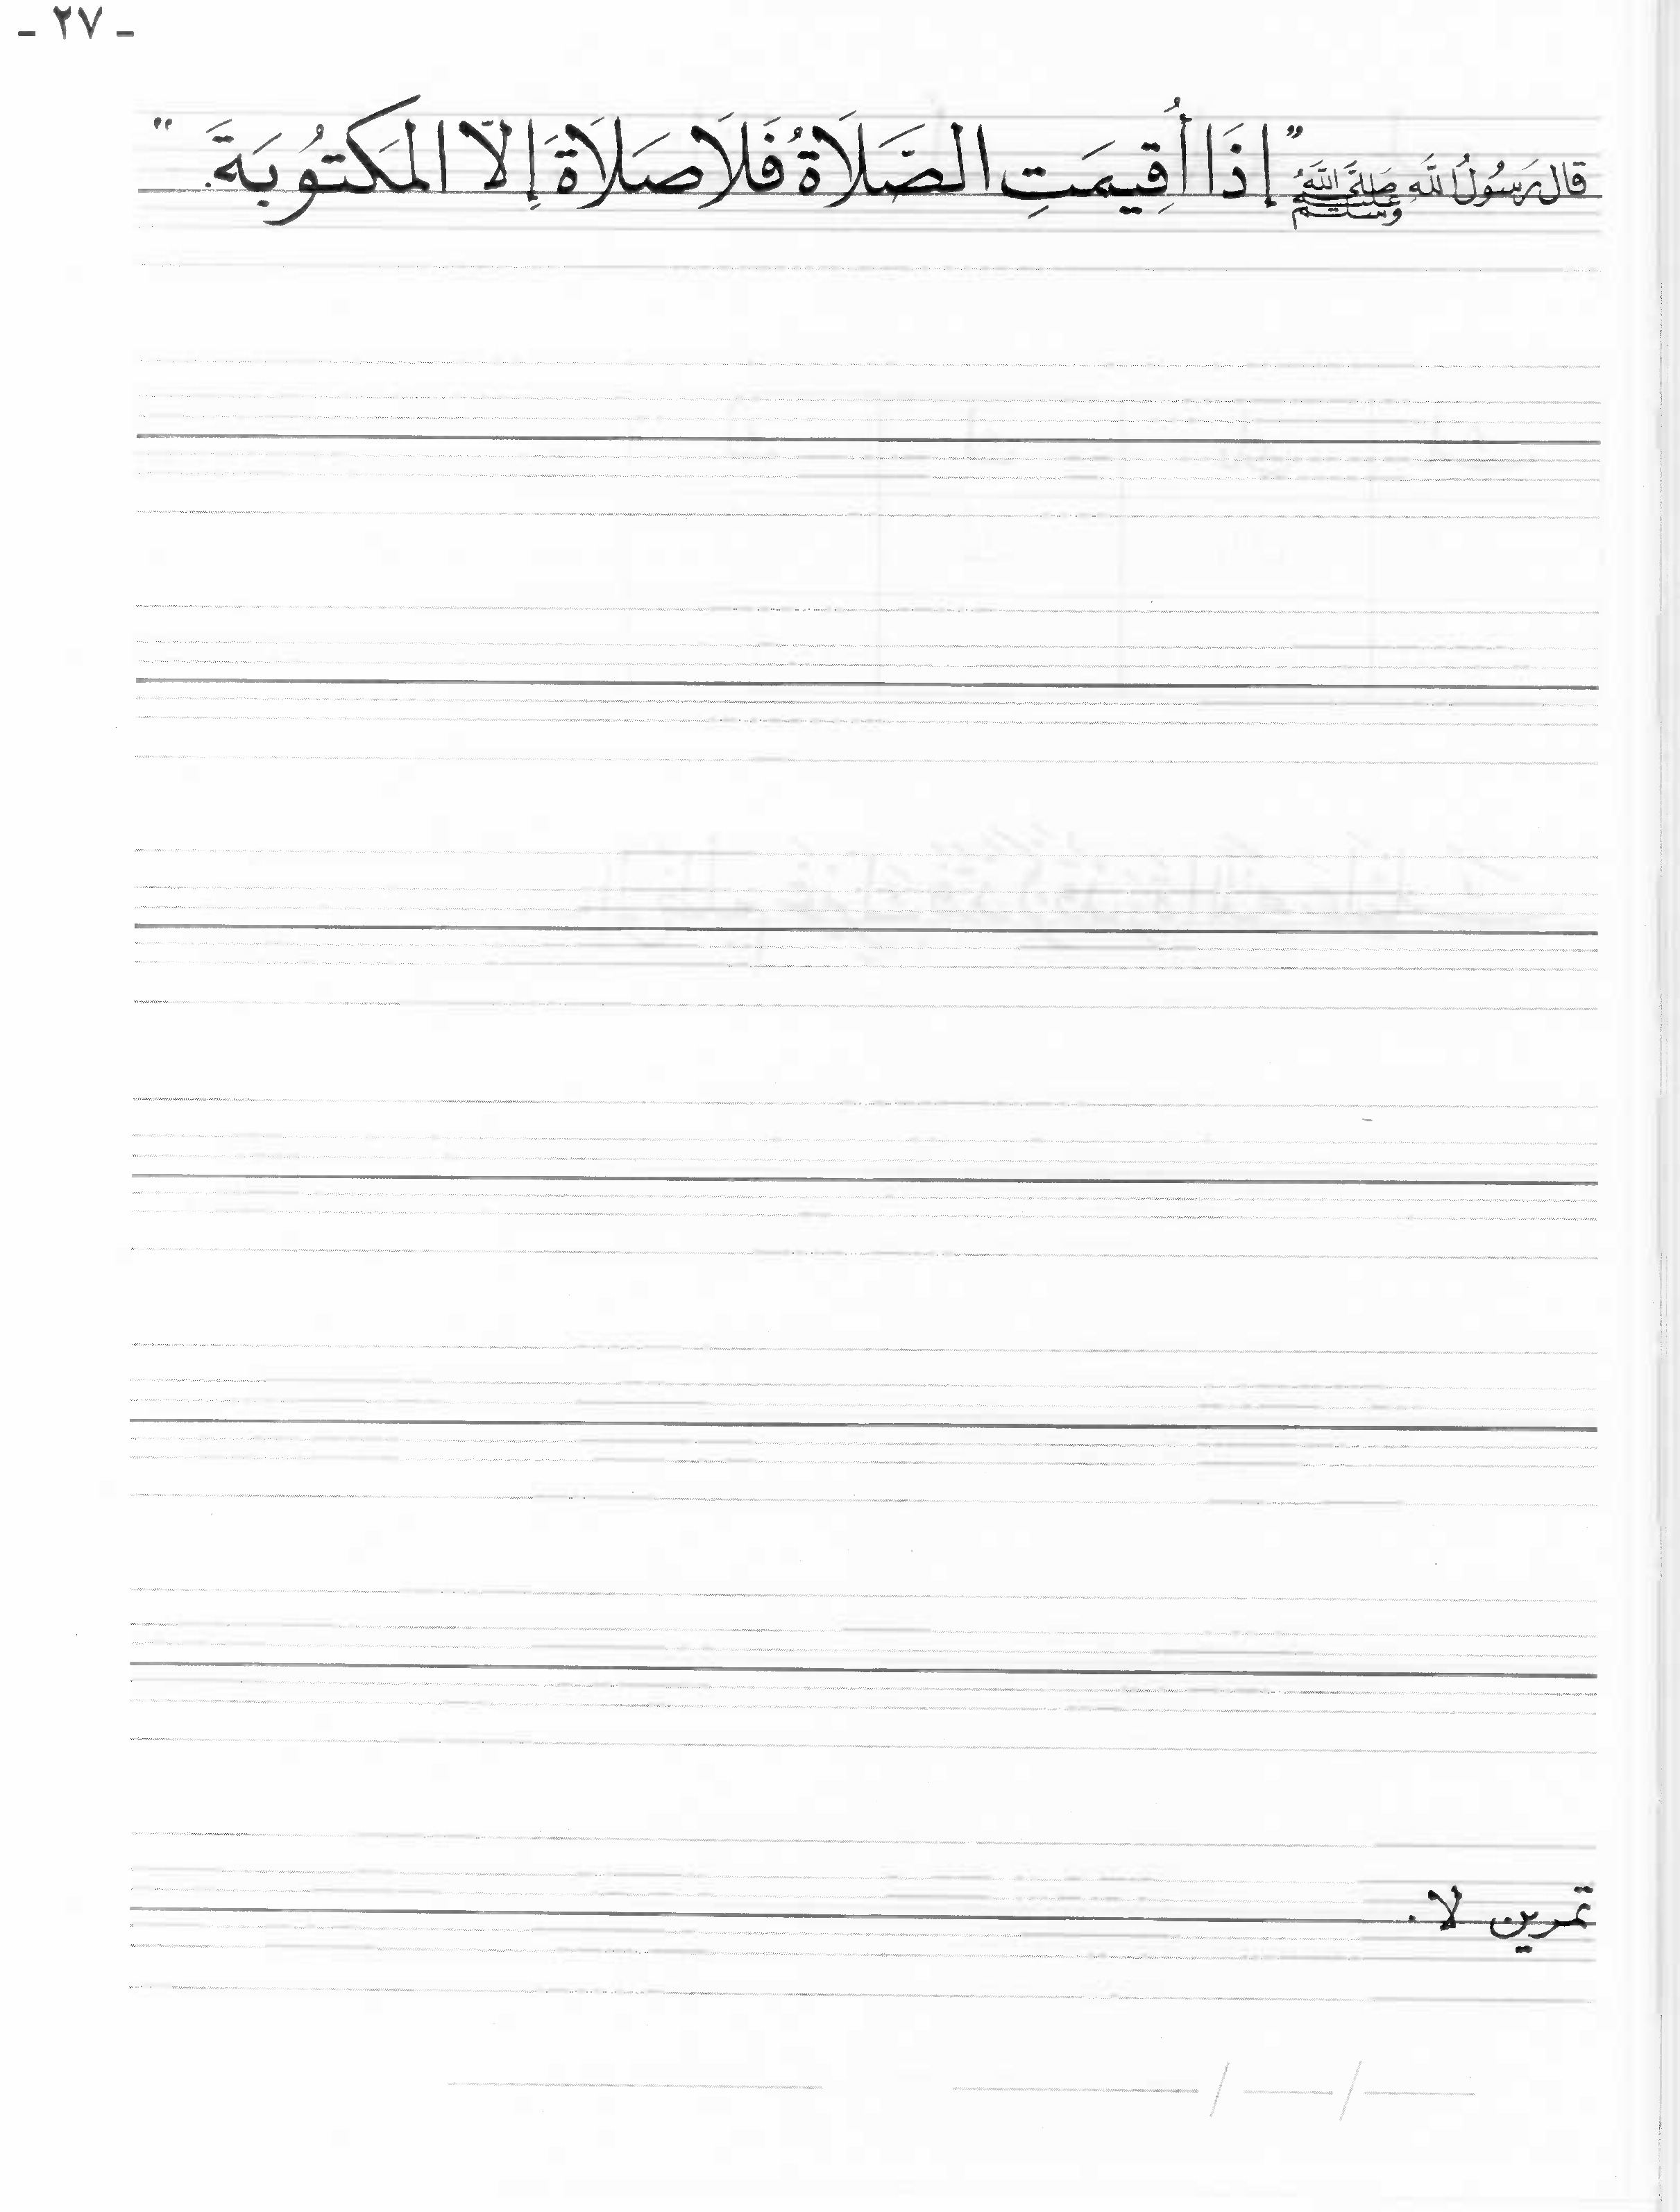 - ٢٧ -
قال رَسولُ اللَّهِ صَلَّى اللَّهُ عَلَيْهِ وَسَلَّم " إِذَا أُقِيمَتِ الصَّلَاةُ فَلَا صَلَاةَ إِلّا المَكتُوبَةَ. "
تمرين لا.